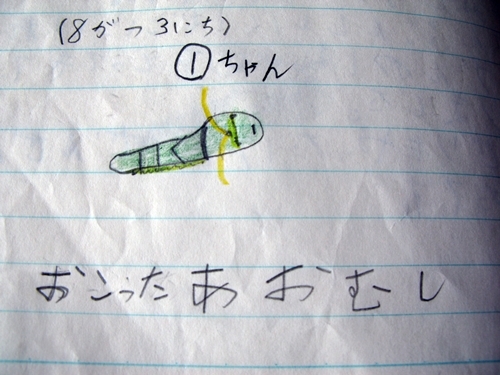 (8がつ3にち)
①ちゃん
おこったあおむし